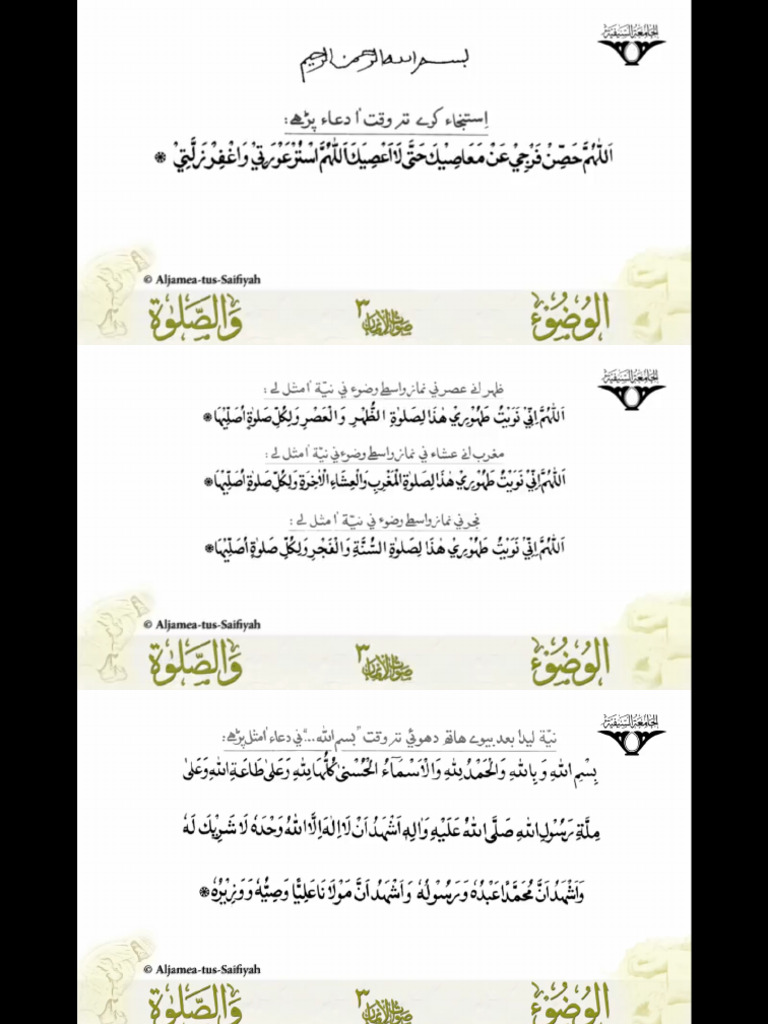 الجامعة السيفية
بسم الله الرحمن الرحيم
إستنجاء كرے تہ وقت أ دعاء پڑھے:
اَللّٰهُمَّ حَصِّنْ فَرْجِيْ عَنْ مَعَاصِيْكَ حَتَّى لَا اَعْصِيَكَ اَللّٰهُمَّ اسْتُرْ عَوْرَتِيْ وَاغْفِرْ زَلَّتِيْ ❋
© Aljamea-tus-Saifiyah
الوُضُوْء ٣ وَالصَّلٰوة
الجامعة السيفية
ظهر انے عصر ني نماز واسطے وضوء ني نيّة أمثل لے:
اَللّٰهُمَّ اِنِّيْ نَوَيْتُ طَهُوْرِيْ هٰذَا لِصَلٰوةِ الظُّهْرِ وَالْعَصْرِ وَلِكُلِّ صَلٰوةٍ اُصَلِّيْهَا ❋
مغرب انے عشاء ني نماز واسطے وضوء ني نيّة أمثل لے:
اَللّٰهُمَّ اِنِّيْ نَوَيْتُ طَهُوْرِيْ هٰذَا لِصَلٰوةِ الْمَغْرِبِ وَالْعِشَاءِ الْاٰخِرَةِ وَلِكُلِّ صَلٰوةٍ اُصَلِّيْهَا ❋
فجر ني نماز واسطے وضوء ني نيّة أمثل لے:
اَللّٰهُمَّ اِنِّيْ نَوَيْتُ طَهُوْرِيْ هٰذَا لِصَلٰوةِ السُّنَّةِ وَالْفَجْرِ وَلِكُلِّ صَلٰوةٍ اُصَلِّيْهَا ❋
© Aljamea-tus-Saifiyah
الوُضُوْء ٣ وَالصَّلٰوة
الجامعة السيفية
نيّة ليدا بعد بيوے هاتھ دهوئي تہ وقت "بسم الله..." ني دعاء أمثل پڑھے:
بِسْمِ اللهِ وَبِاللهِ وَالْحَمْدُ لِلّٰهِ وَالْاَسْمَاءُ الْحُسْنٰى كُلُّهَا لِلّٰهِ وَعَلٰى طَاعَةِ اللهِ وَعَلٰى
مِلَّةِ رَسُوْلِ اللهِ صَلَّى اللهُ عَلَيْهِ وَاٰلِهِ اَشْهَدُ اَنْ لَا اِلٰهَ اِلَّا اللهُ وَحْدَهُ لَا شَرِيْكَ لَهُ
وَاَشْهَدُ اَنَّ مُحَمَّدًا عَبْدُهُ وَرَسُوْلُهُ وَاَشْهَدُ اَنَّ مَوْلَانَا عَلِيًّا وَصِيُّهُ وَوَزِيْرُهُ ❋
© Aljamea-tus-Saifiyah
الوُضُوْء ٣ وَالصَّلٰوة